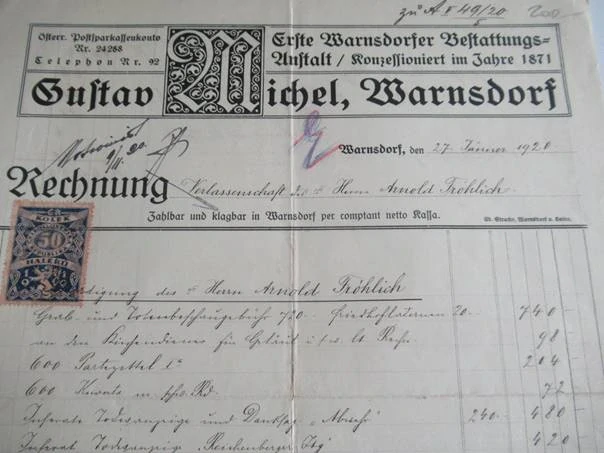 zu A I 49/20 200.-
Österr. Postsparkassenkonto
Nr. 24288
Telephon Nr. 92
Erste Warnsdorfer Bestattungs=
Anstalt / Konzessioniert im Jahre 1871
Gustav Michel, Warnsdorf
Warnsdorf, den 27. Jänner 1920.
Rechnung Verlassenschaft Herrn Arnold Fröhlich.
Zahlbar und klagbar in Warnsdorf per comptant netto Kassa.
KOLEK
50
HALÉŘŮ
des Herrn Arnold Fröhlich
Grab- und Totenbeschaugebühr 720.- Friedhoflaternen 20.- 740 -
an den Kirchendiener für Geläut u.s.w. lt. Rechn. 98
600 Partezettel 204 -
600 Kuverts m. schw. Rd. 72
Inserate Todesanzeige und Danksag. "Abwehr" 240.- 480 -
Inserat Todesanzeige "Reichenberger Ztg" 420 -